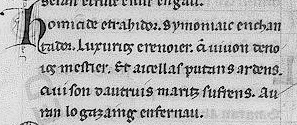 Homicide etrahidor. Symoniaic enchan
tador. Luxurios e renoier. Q uiuon de no
ios mestier. Et aicellas putans ardens.
Qui son dautruis maritz sufrens. Au
ran lo gazaing enfernau.